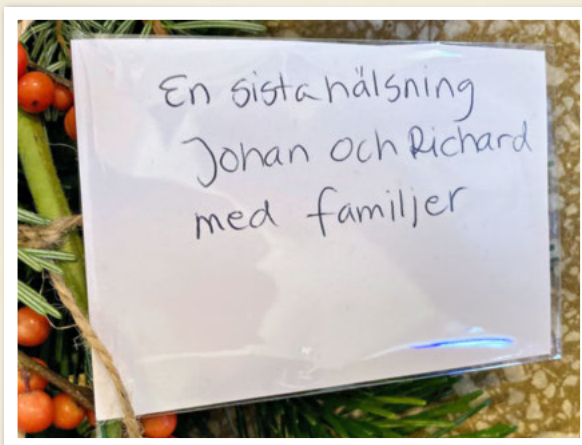 En sista hälsning
Johan och Richard
med familjer